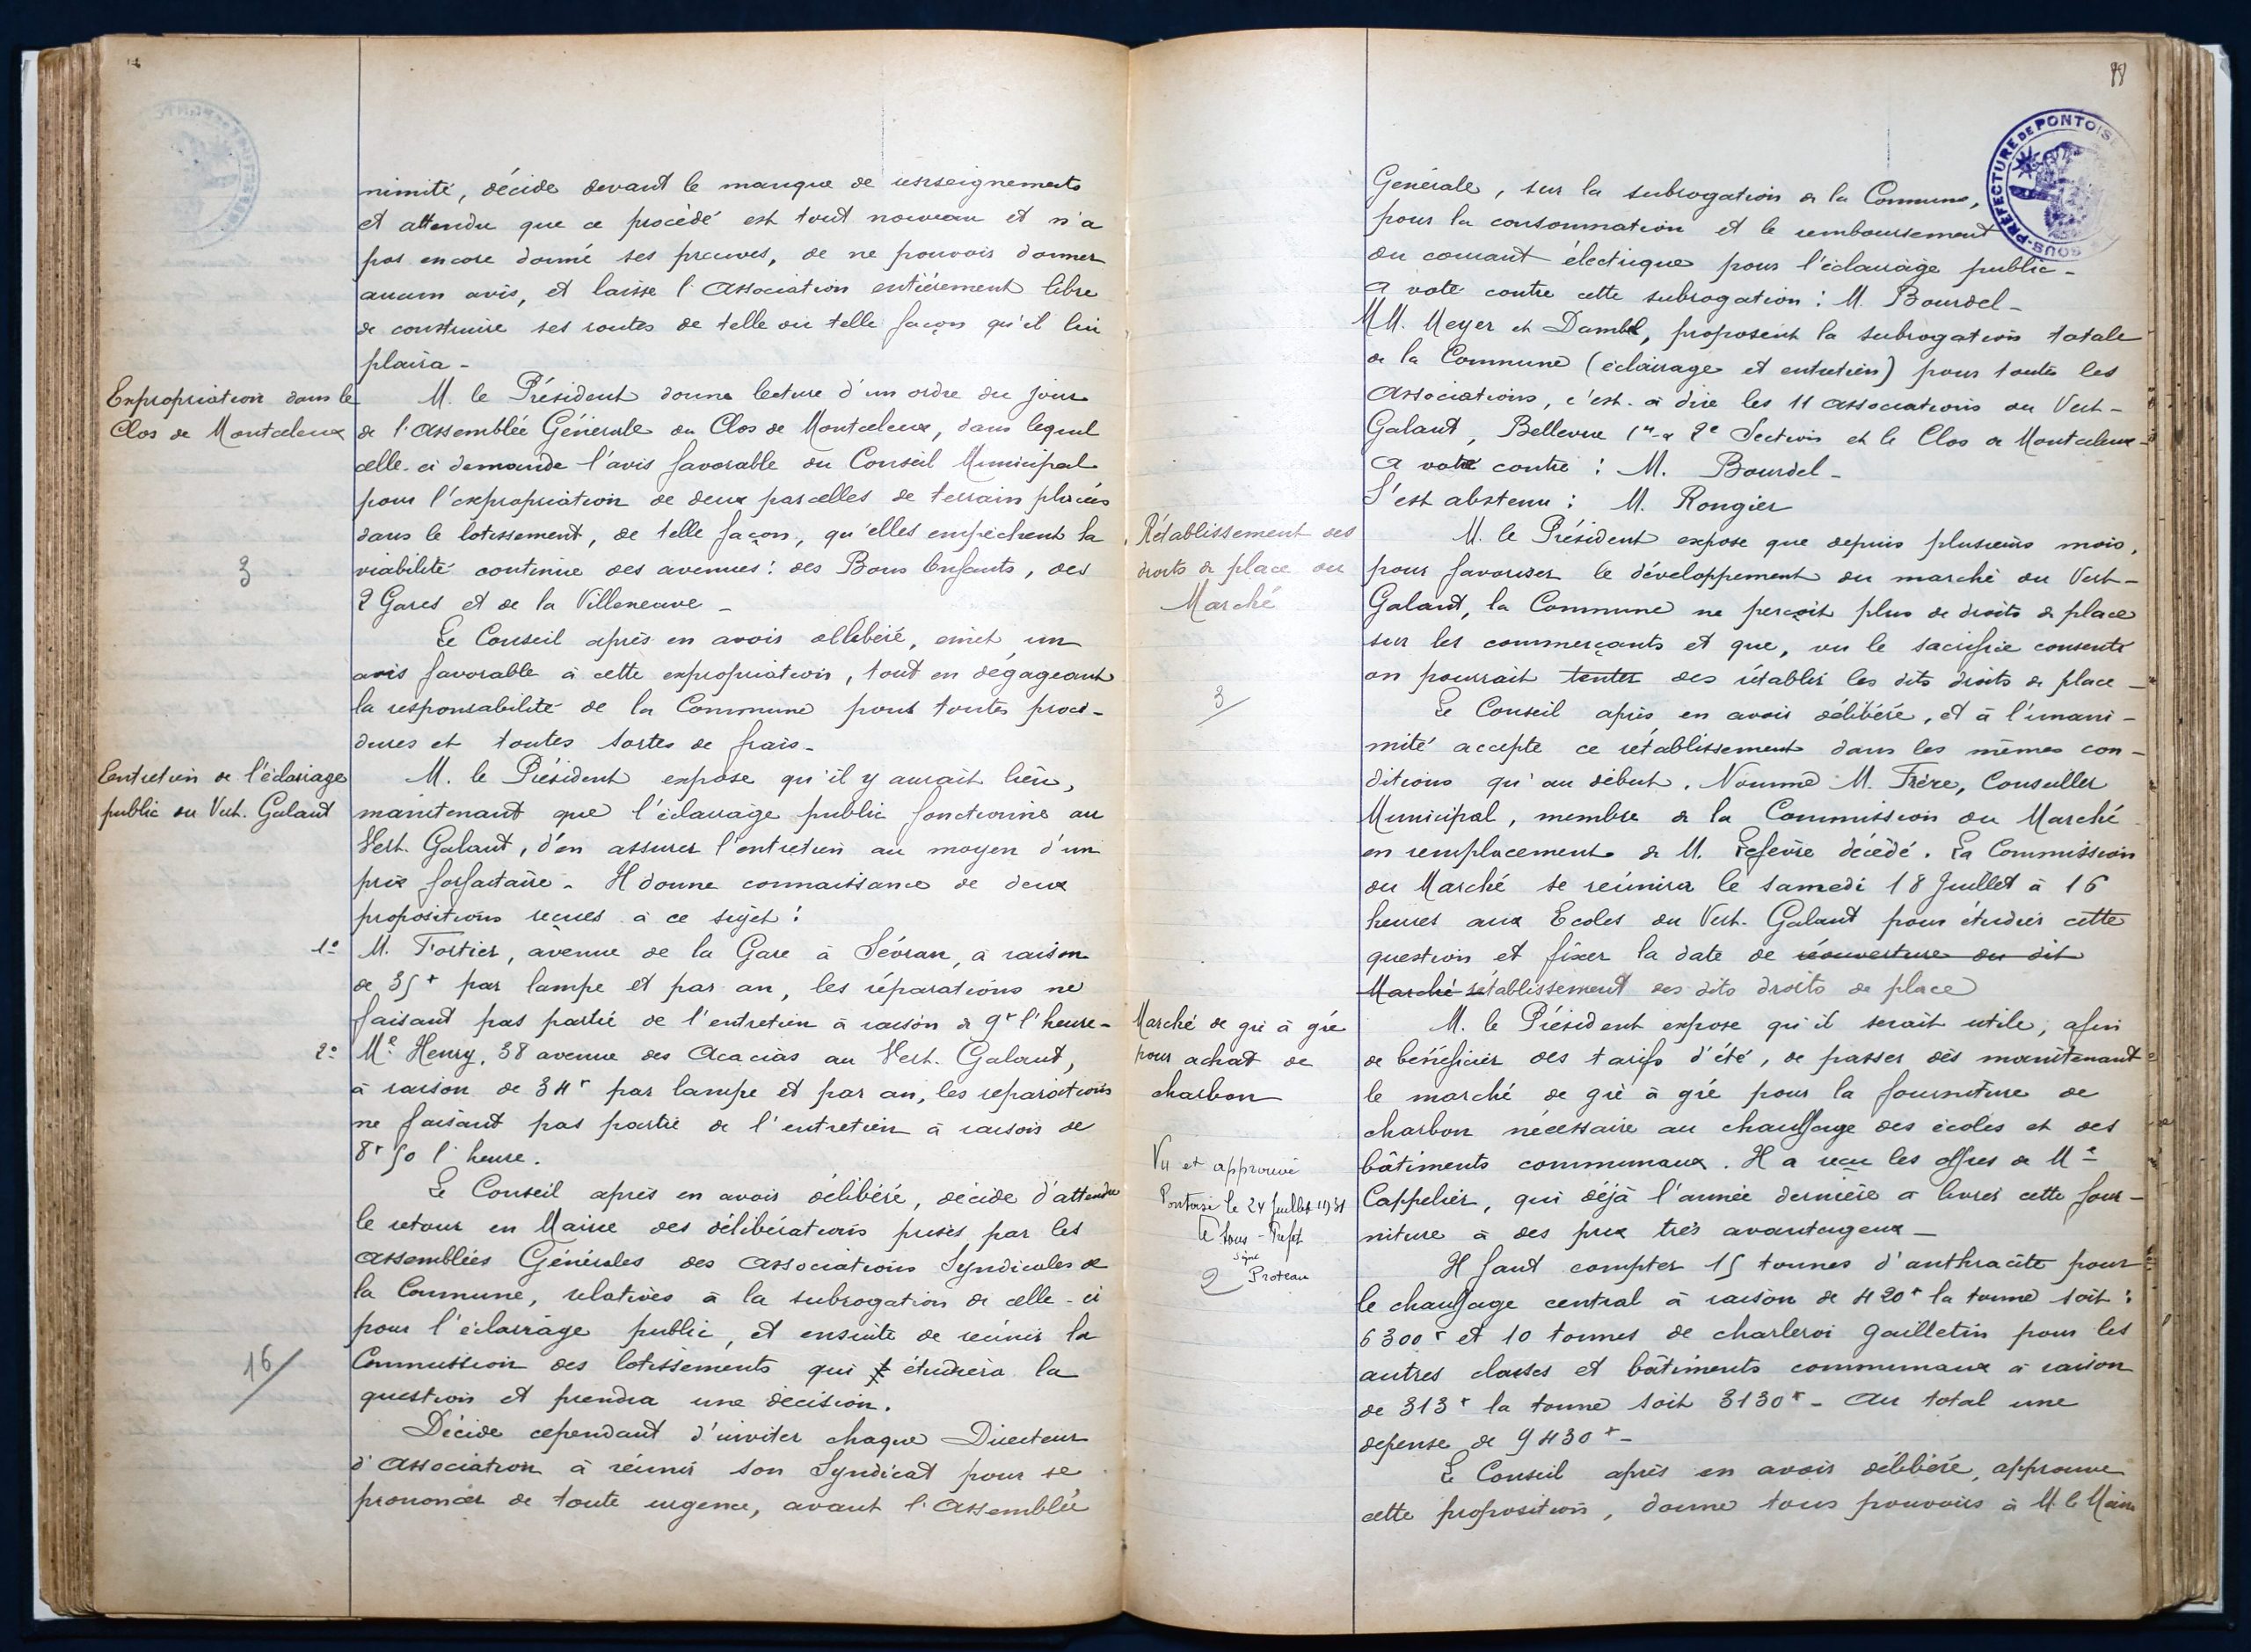 nimité, décide devant le manque de renseignements
et attendu que ce procédé est tout nouveau et n'a
pas encore donné ses preuves, de ne pouvoir donner
aucun avis, et laisse l'Association entièrement libre
de construire ses routes de telle ou telle façon qu'il lui
plaira -
Expropriation dans le
Clos de Montceleux
M. le Président donne lecture d'un ordre du jour
de l'Assemblée Générale du Clos de Montceleux, dans lequel
celle-ci demande l'avis favorable du Conseil Municipal
pour l'expropriation de deux parcelles de terrain placées
dans le lotissement, de telle façon, qu'elles empêchent la
viabilité continue des avenues : des Bons Enfants, des
2 Gares et de la Villeneuve -
3
Le Conseil après en avoir délibéré, émet un
avis favorable à cette expropriation, tout en dégageant
la responsabilité de la Commune pour toutes procé-
dures et toutes sortes de frais -
Entretien de l'éclairage
public du Vert-Galant
M. le Président expose qu'il y aurait lieu,
maintenant que l'éclairage public fonctionne au
Vert-Galant, d'en assurer l'entretien au moyen d'un
prix forfaitaire - Il donne connaissance de deux
propositions reçues à ce sujet :
1º M. Fortier, avenue de la Gare à Sévran, à raison
de 35f par lampe et par an, les réparations ne
faisant pas partie de l'entretien à raison de 9f l'heure -
2º Mr Henry, 38 avenue des Acacias au Vert-Galant,
à raison de 34f par lampe et par an, les réparations
ne faisant pas partie de l'entretien à raison de
8f50 l'heure.
Le Conseil après en avoir délibéré, décide d'attendre
le retour en Mairie des délibérations prises par les
Assemblées Générales des Associations Syndicales de
la Commune, relatives à la subrogation de celle-ci
pour l'éclairage public, et ensuite de réunir la
Commission des lotissements qui étudiera la
question et prendra une décision.
16
Décide cependant d'inviter chaque Directeur
d'Association à réunir son Syndicat pour se
prononcer de toute urgence, avant l'Assemblée
SOUS-PRÉFECTURE DE PONTOIS
Générale, sur la subrogation de la Commune,
pour la consommation et le remboursement
du courant électrique pour l'éclairage public -
A voté contre cette subrogation : M. Bourdel -
MM. Meyer et Dambel, proposent la subrogation totale
de la Commune (éclairage et entretien) pour toutes les
Associations, c'est-à-dire les 11 associations du Vert-
Galant, Bellevue 1re & 2e Section et le Clos de Montceleux -
A voté contre : M. Bourdel -
S'est abstenu : M. Rongier
Rétablissement des
droits de place au
Marché
M. le Président expose que depuis plusieurs mois,
pour favoriser le développement du marché du Vert-
Galant, la Commune ne perçoit plus de droits de place
sur les commerçants et que, vu le sacrifice consenti
on pourrait tenter des rétablir les dits droits de place -
3
Le Conseil après en avoir délibéré, et à l'unani-
mité accepte ce rétablissement dans les mêmes con-
ditions qu'au début. Nomme M. Frère, Conseiller
Municipal, membre de la Commission du Marché
en remplacement de M. Lefevre décédé. La Commission
du Marché se réunira le samedi 18 Juillet à 16
heures aux Ecoles du Vert-Galant pour étudier cette
question et fixer la date de réouverture du dit
Marché rétablissement des dits droits de place
Marché de gré à gré
pour achat de
charbon
M. le Président expose qu'il serait utile, afin
de bénéficier des tarifs d'été, de passer dès maintenant
le marché de gré à gré pour la fourniture de
charbon nécessaire au chauffage des écoles et des
bâtiments communaux. Il a reçu les offres de Mr
Cappelier, qui déjà l'année dernière a livrer cette four-
niture à des prix très avantageux -
Vu et approuvé
Pontoise le 24 Juillet 1931
le Sous-Préfet
signé
Proteau
2
Il faut compter 15 tonnes d'anthracite pour
le chauffage central à raison de 420f la tonne soit :
6300f et 10 tonnes de charleroi gailletin pour les
autres classes et bâtiments communaux à raison
de 313f la tonne soit 3130f - Au total une
dépense de 9430f -
Le Conseil après en avoir délibéré, approuve
cette proposition, donne tous pouvoirs à M. le Maire